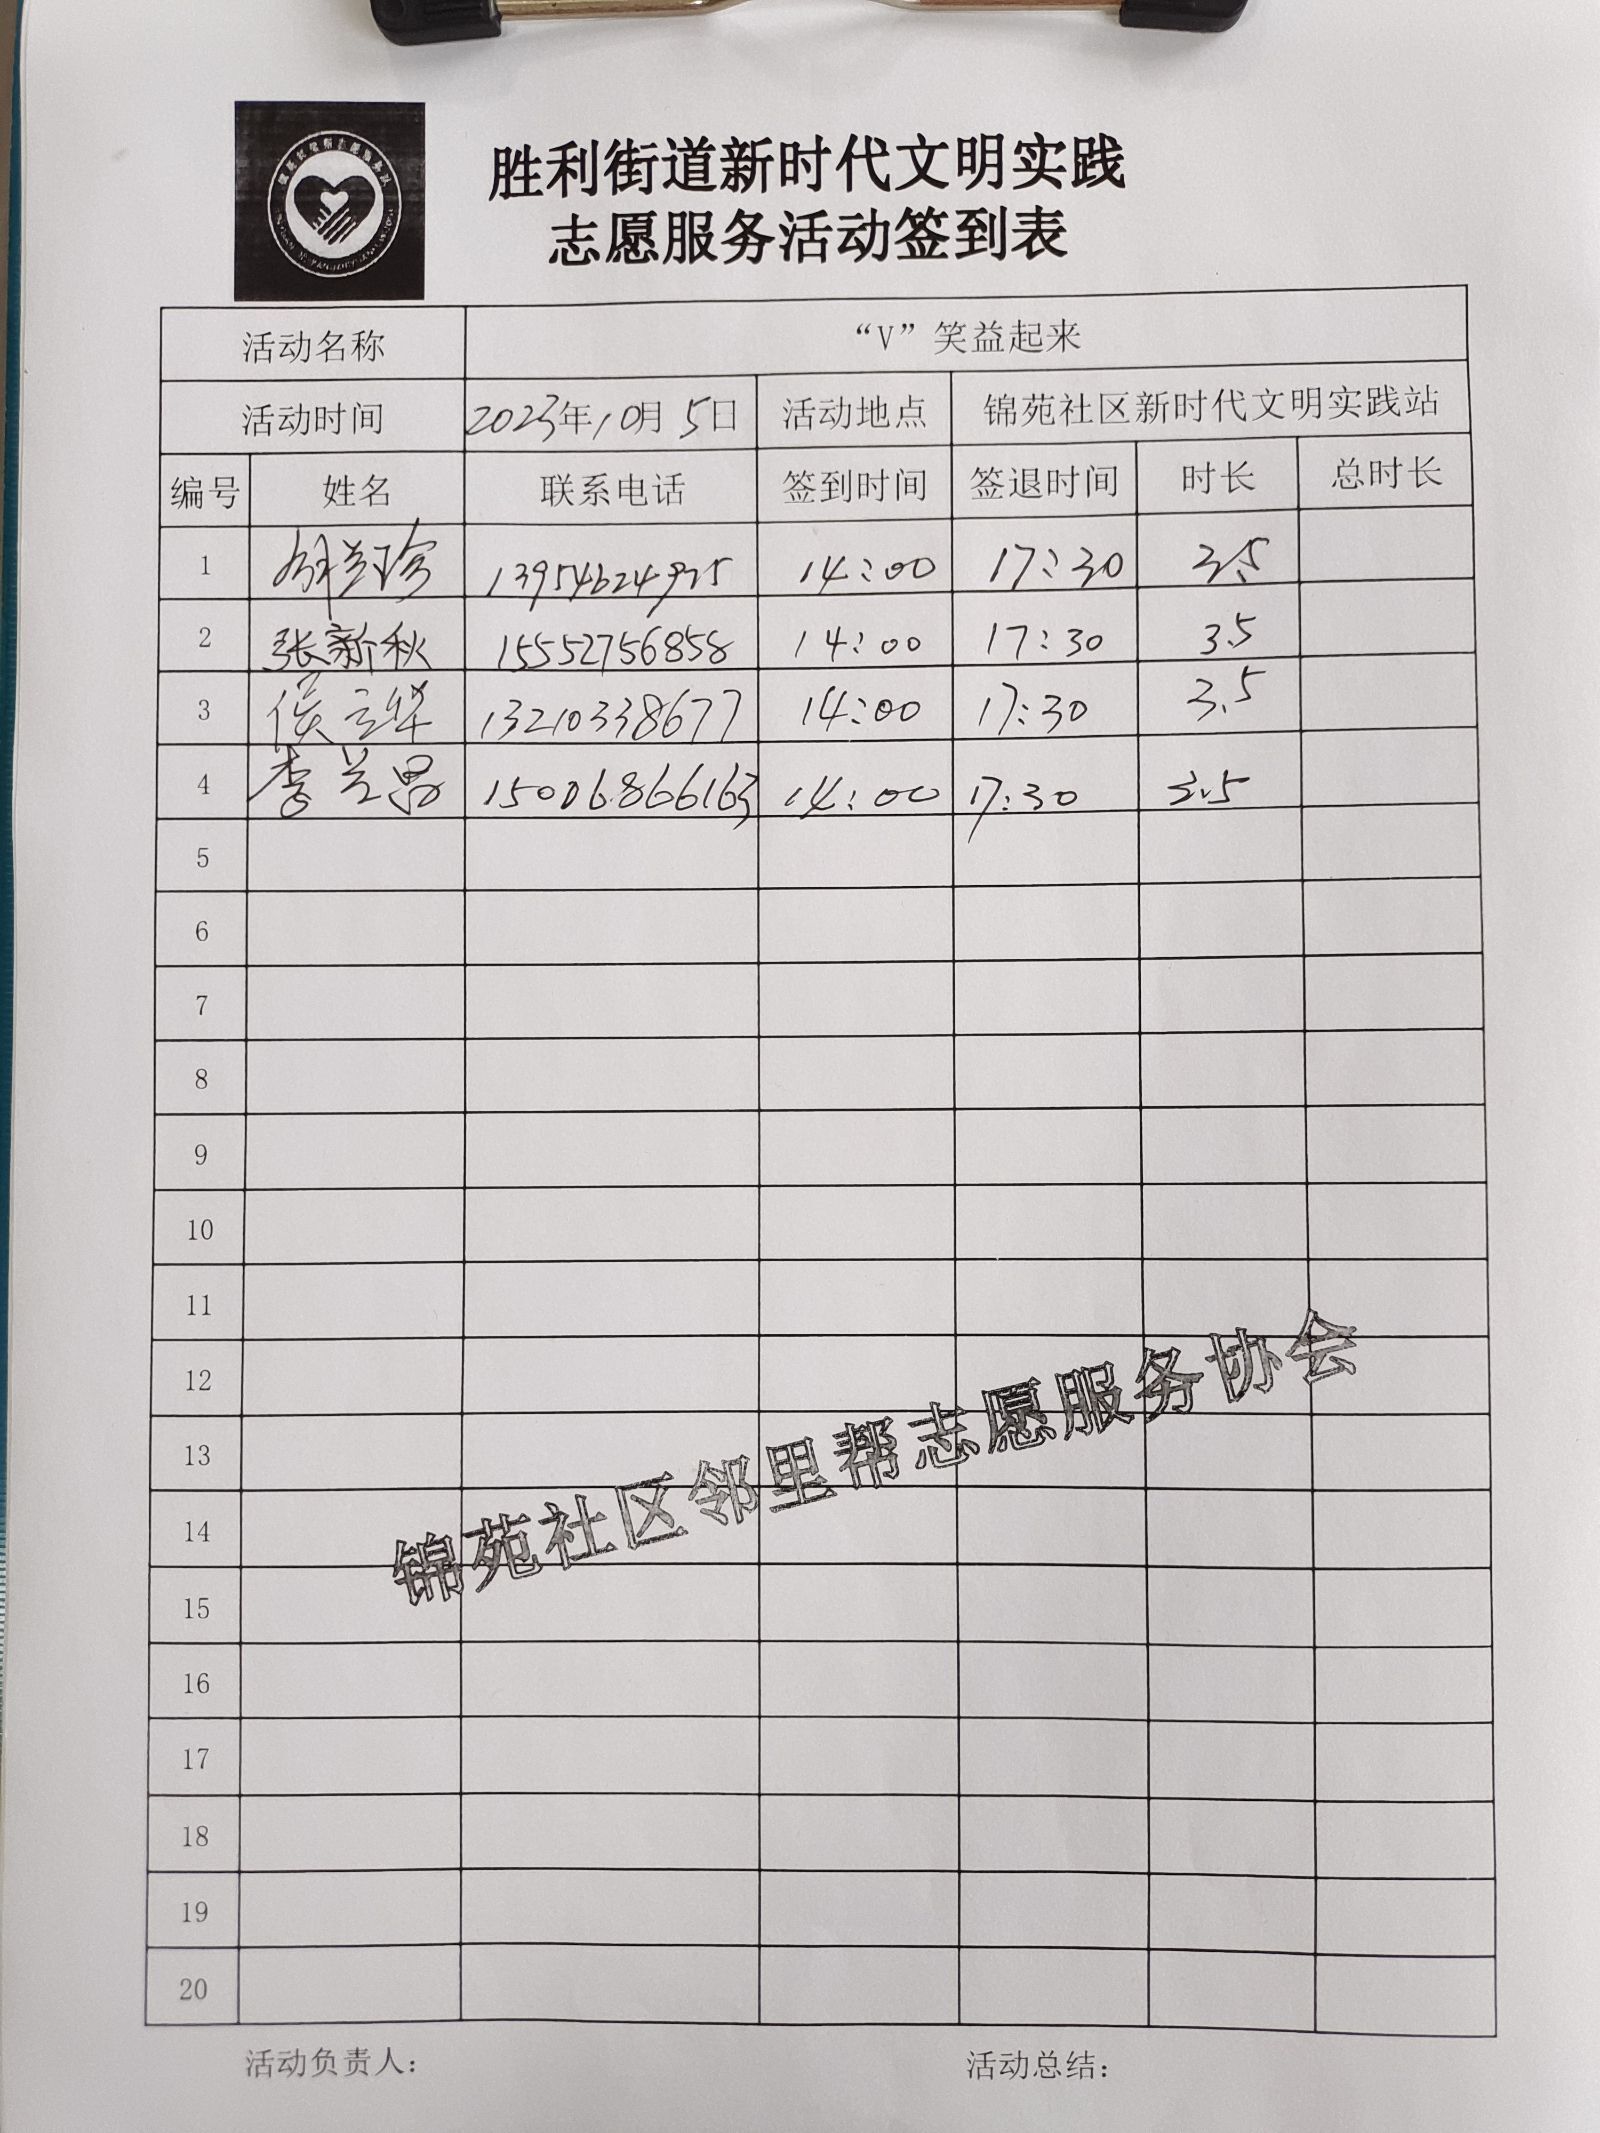 胜利街道新时代文明实践
志愿服务活动签到表
活动名称 “V”笑益起来
活动时间 2023年10月5日 活动地点 锦苑社区新时代文明实践站
编号 姓名 联系电话 签到时间 签退时间 时长 总时长
1 14:00 17:30 3.5
2 张新秋 15552756858 14:00 17:30 3.5
3 侯立华 13210338677 14:00 17:30 3.5
4 15006866163 14:00 17:30 3.5
5
6
7
8
9
10
11
12
13
14
15
16
17
18
19
20
锦苑社区邻里帮志愿服务协会
活动负责人: 活动总结: